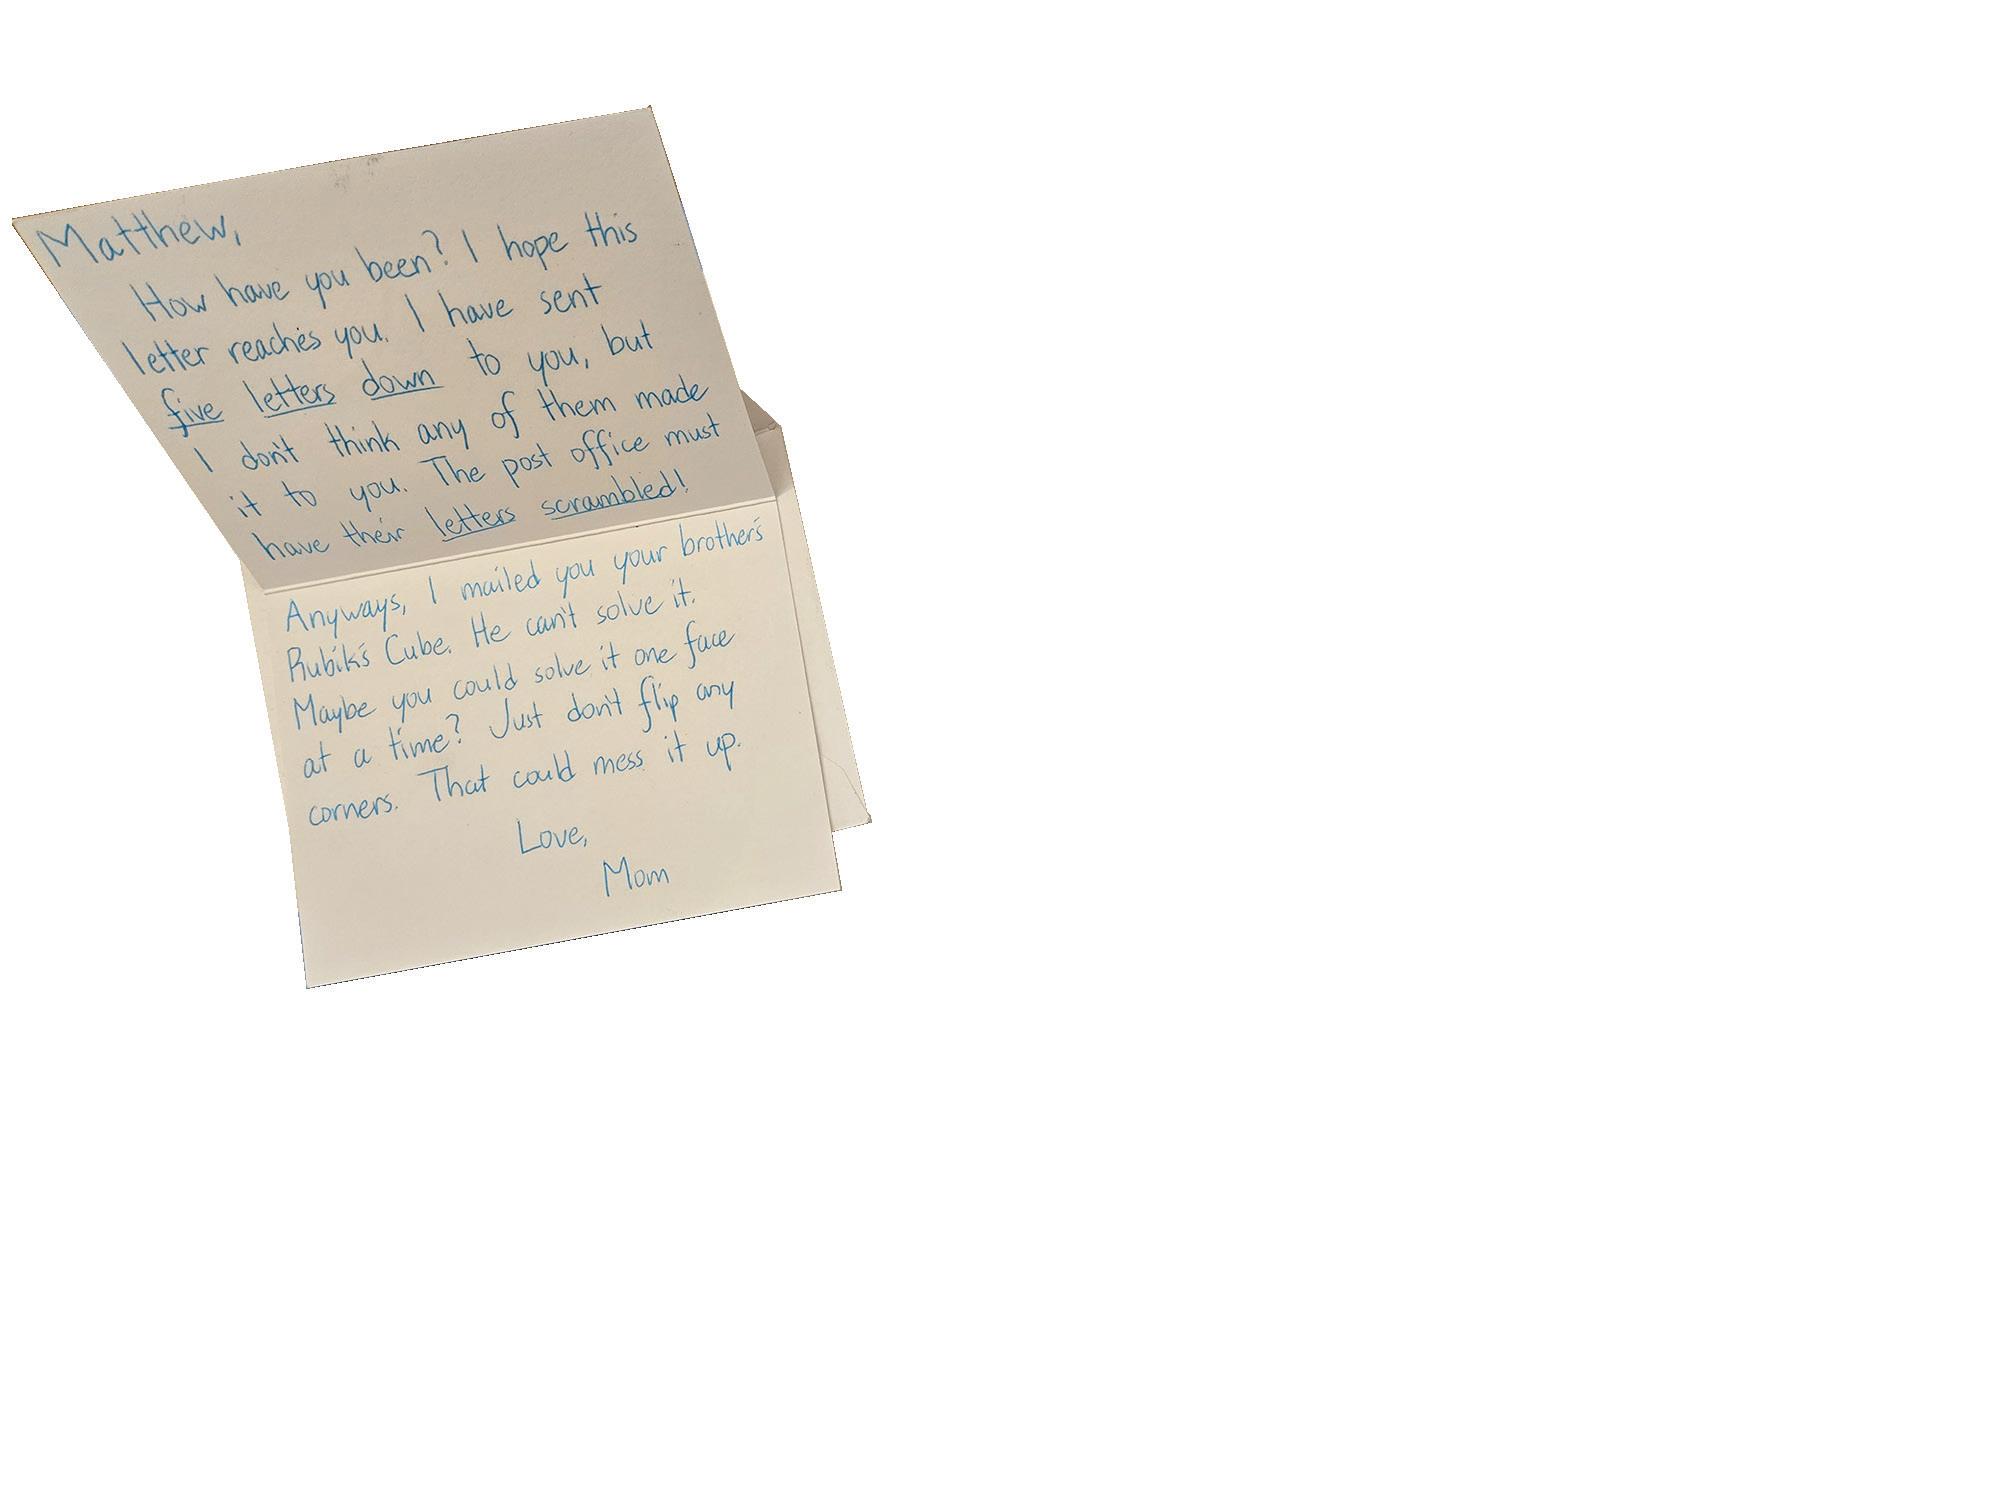 Matthew,
How have you been? I hope this
letter reaches you. I have sent
five letters down to you, but
I don't think any of them made
it to you. The post office must
have their letters scrambled!
Anyways, I mailed you your brother's
Rubik's Cube. He can't solve it.
Maybe you could solve it one face
at a time? Just don't flip any
corners. That could mess it up.
Love,
Mom